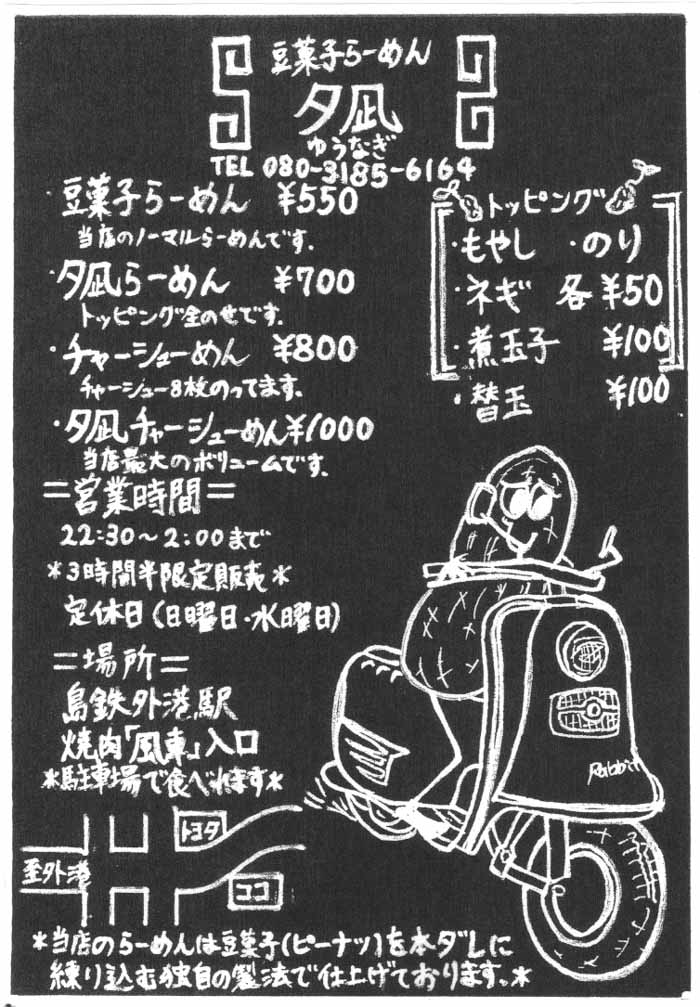 豆菓子らーめん
夕凪
ゆうなぎ
TEL 080-3185-6164
・豆菓子らーめん ¥550
当店のノーマルらーめんです.
・夕凪らーめん ¥700
トッピング全のせです.
・チャーシューめん ¥800
チャーシュー8枚のってます.
・夕凪チャーシューめん¥1000
当店最大のボリュームです.
トッピング
・もやし ・のり
・ネギ 各¥50
・煮玉子 ¥100
・替玉 ¥100
=営業時間=
22:30〜2:00まで
*3時間半限定販売*
定休日(日曜日・水曜日)
=場所=
島鉄外港駅
焼肉「風車」入口
*駐車場で食べれます*
トヨタ
至外港
ココ
Rabbit
*当店のらーめんは豆菓子(ピーナツ)を本ダレに
練り込む独自の製法で仕上げております。*